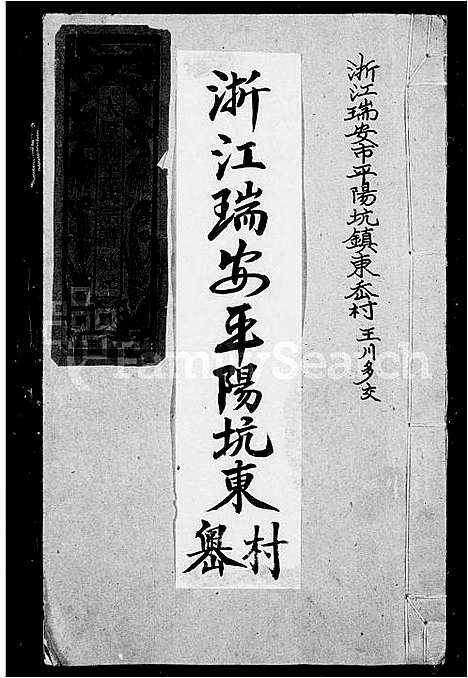 浙江瑞安市平陽坑鎮東岙村 王川多交
浙江瑞安平陽坑東
嶴村
FamilySearch